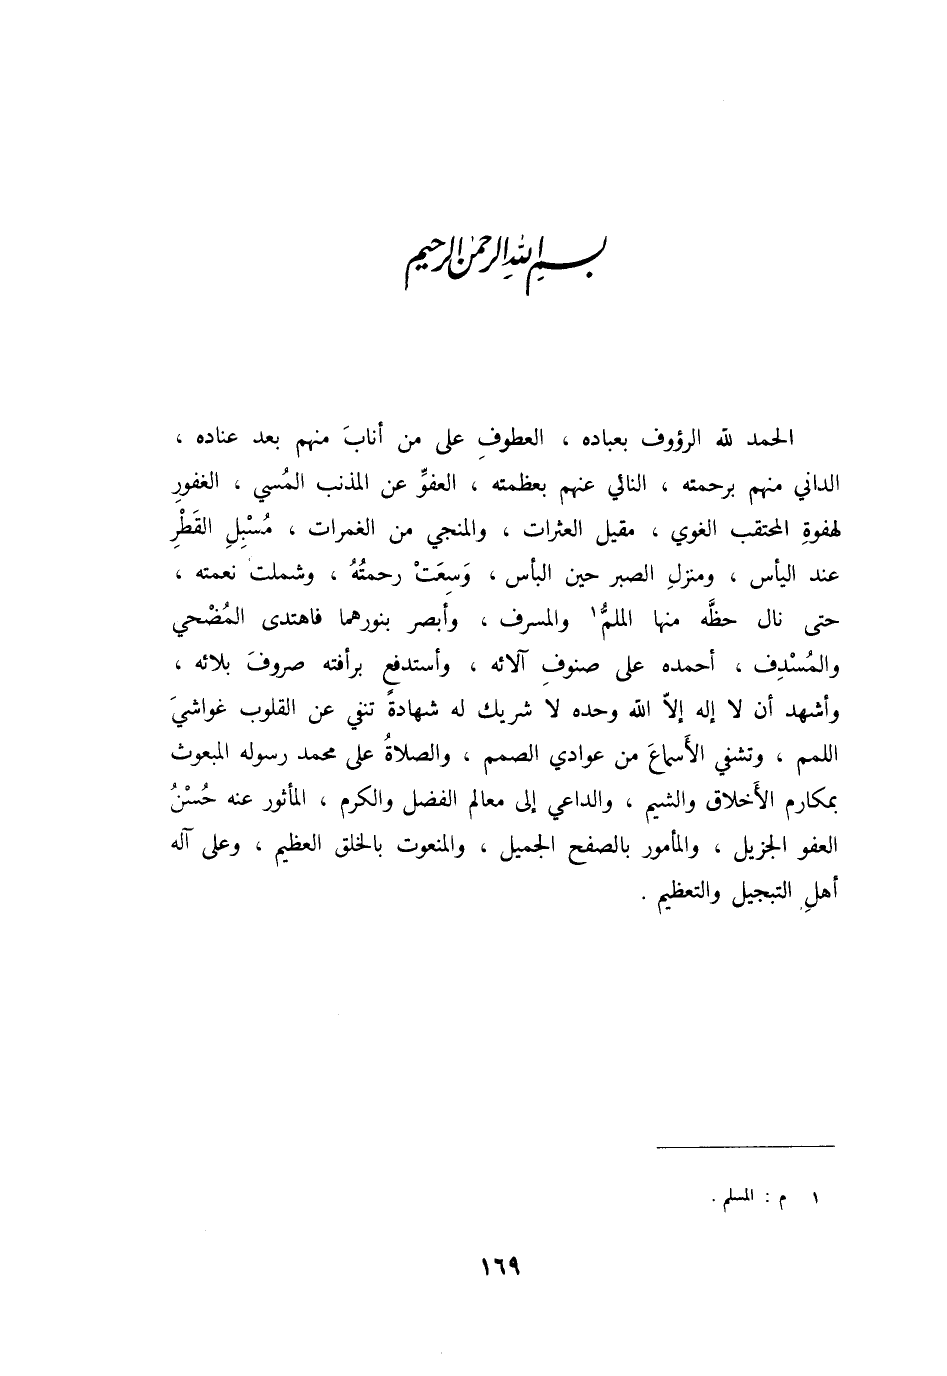 بسم الله الرحمن الرحيم
الحمد لله الرؤوف بعباده ، العطوفِ على من أنابَ منهم بعد عناده ،
الداني منهم برحمته ، النائي عنهم بعظمته ، العفوِّ عن المذنب المُسي ، الغفورِ
لهفوةِ المحتقب الغوي ، مقيل العثرات ، والمنجي من الغمرات ، مُسْبِلِ القَطْرِ
عند اليأس ، ومنزلِ الصبر حين البأس ، وَسِعَتْ رحمتُهُ ، وشملت نعمته ،
حتى نال حظَّه منها الملمُّ١ والمسرف ، وأبصر بنورهما فاهتدى المُضْحي
والمُسْدِف ، أحمده على صنوفِ آلائه ، وأستدفع برأفته صروفَ بلائه ،
وأشهد أن لا إله إلاّ الله وحده لا شريك له شهادةً تنفي عن القلوب غواشيَ
اللمم ، وتشفي الأسماعَ من عوادي الصمم ، والصلاةُ على محمد رسوله المبعوث
بمكارم الأَخلاق والشيم ، والداعي إلى معالم الفضل والكرم ، المأثور عنه حُسْنُ
العفو الجزيل ، والمأمور بالصفح الجميل ، والمنعوت بالخلق العظيم ، وعلى آله
أهلِ التبجيل والتعظيم .
١ م : المسلم .
١٦٩